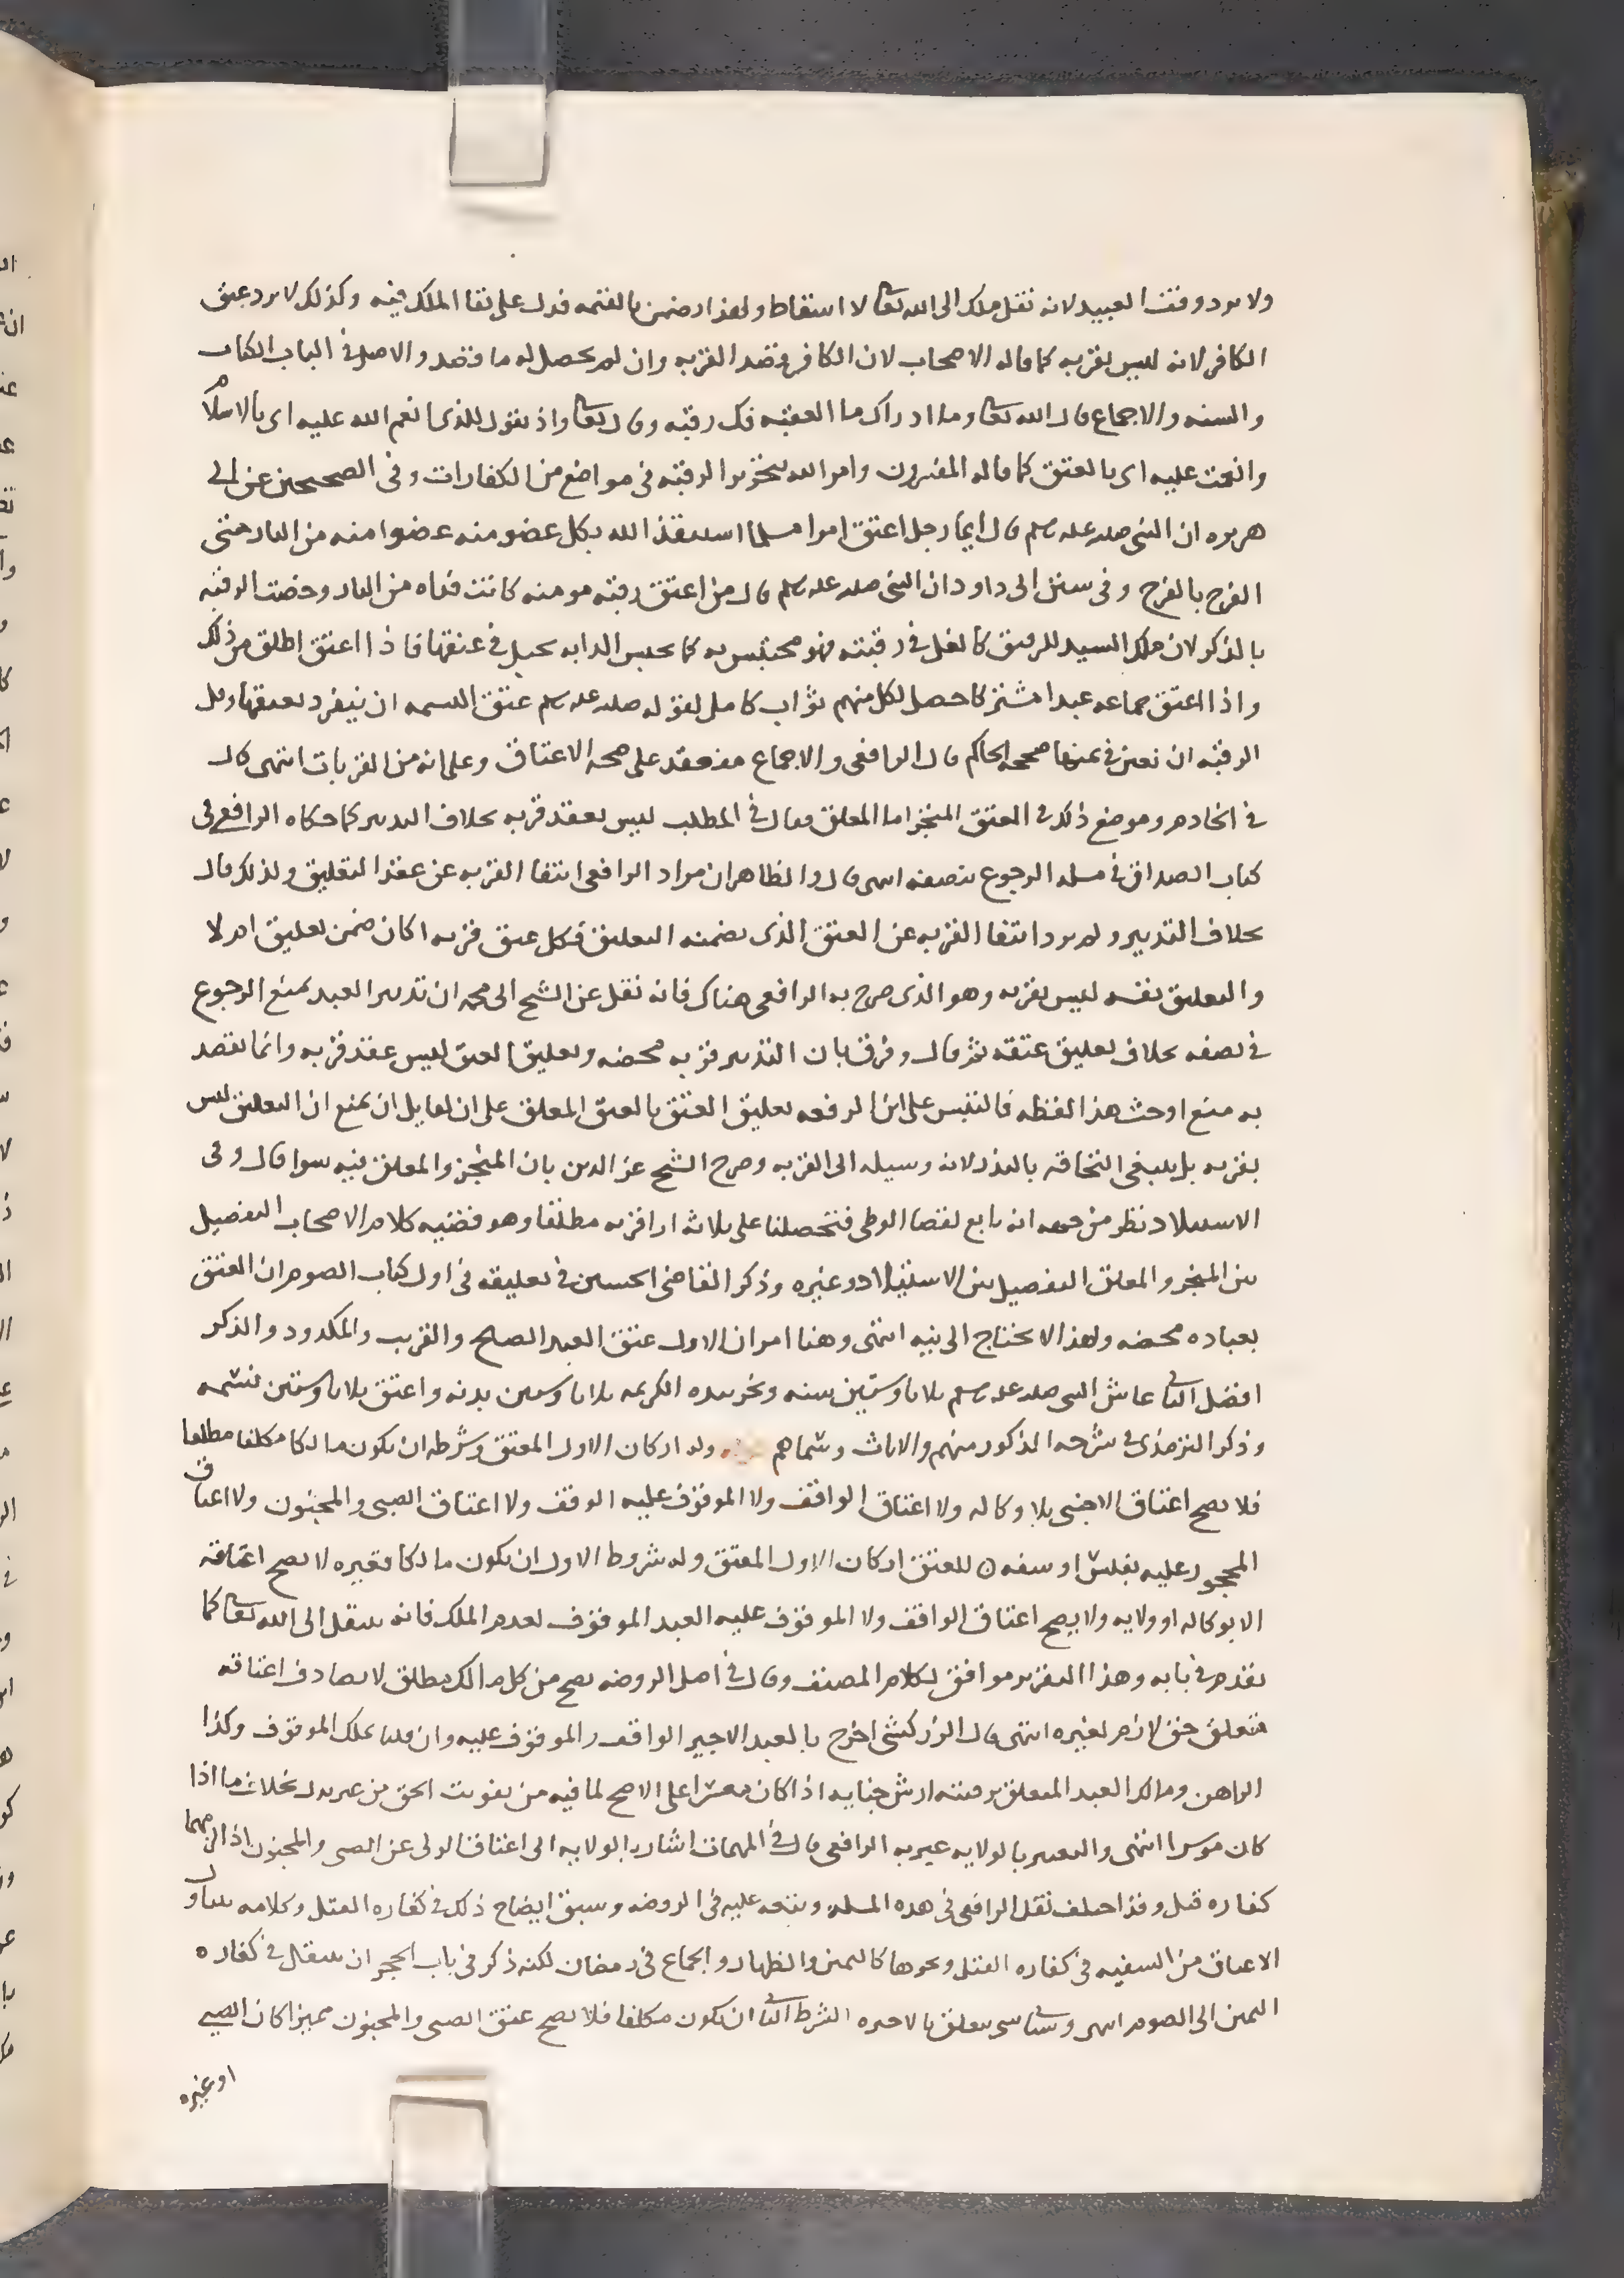 ولا يرد وقف العبيد لانه نقل ملك الى الله تعالى لا اسقاط ولهذا يضمن بالقيمه فدل على بقا الملك فيه وكذلك لا يرد عتق
الكافر لانه ليس بقربه كما قاله الاصحاب لان الكافر يقصد القربه وان لم يحصل له ما قصد والاصل في الباب الكتاب
والسنه والاجماع قال الله تعالى وما ادراك ما العقبه فك رقبه وقال تعالى واذ تقول للذى انعم الله عليه اى بالاسلام
وانعمت عليه اى بالعتق كما قاله المفسرون وامر الله بتحرير الرقبه فى مواضع من الكفارات وفى الصحيحين عن ابى
هريره ان النبى صلى الله عليه وسلم قال ايما رجل اعتق امرا مسلما استنقذ الله بكل عضو منه عضوا منه من النار حتى
الفرج بالفرج وفى سنن ابى داود ان النبى صلى الله عليه وسلم قال من اعتق رقبه مومنه كانت فداه من النار وخصت الرقبه
بالذكر لان ملك السيد للرقيق كالغل فى رقبته فهو محتبس به كما يحبس الدابه بحبل فى عنقها فاذا اعتق اطلق من ذلك
واذا اعتق جماعه عبدا مشتركا حصل لكل منهم ثواب كامل لقوله صلى الله عليه وسلم عتق النسمه ان ينفرد بعتقها وفك
الرقبه ان تعين فى عتقها صححه الحاكم قال الرافعى والاجماع منعقد على صحه الاعتاق وعلى انه من القربات انتهى قال
فى الخادم وموضع ذلك فى العتق المنجز اما المعلق فقال فى المطلب ليس بعقد قربه بخلاف التدبير كما حكاه الرافعى فى
كتاب الصداق فى مسله الرجوع بنصفه انتهى قال والظاهر ان مراد الرافعى انتفا القربه عن عقد التعليق ولذلك قال
بخلاف التدبير ولم يرد انتفا القربه عن العتق الذى يضمنه التعليق فكل عتق قربه اكان ضمن تعليق ام لا
والتعليق نفسه ليس بقربه وهو الذى صرح به الرافعى هناك فانه نقل عن الشيخ ابى محمد ان تدبير العبد يمنع الرجوع
فى نصفه بخلاف تعليق عتقه ثم قال وفرق بان التدبير قربه محضه وتعليق العتق ليس عقد قربه وانما يقصد
به منع او حث هذا لفظه فالتبس على ابن الرفعه تعليق العتق بالعتق المعلق على ان لقايل ان يمنع ان التعليق ليس
بقربه بل ينبغى التحاقه بالنذر لانه وسيله الى القربه وصرح الشيخ عز الدين بان المنجز والمعلق فيه سوا قال وفى
الاستيلاد نظر من جهه انه تابع لقضا الوطى فتحصلنا على ثلاثه ارا قربه مطلقا وهو قضيه كلام الاصحاب التفصيل
بين المنجز والمعلق التفصيل بين الاستيلاد وغيره وذكر القاضى الحسين فى تعليقه فى اول كتاب الصوم ان العتق
بعباده محضه ولهذا لا يحتاج الى نيه انتهى وهنا امران الاول عتق العبد الصالح والقريب والمكدود والذكر
افضل الثانى عاش النبى صلى الله عليه وسلم ثلاثا وستين سنه ونحر بيده الكريمه ثلاثا وستين بدنه واعتق ثلاثا وستين نسمه
وذكر الترمذى فى شرحه الذكور منهم والاناث وسماهم وله اركان الاول المعتق وشرطه ان يكون مالكا مكلفا مطلقا
فلا يصح اعتاق الاجنبى بلا وكاله ولا اعتاق الواقف ولا الموقوف عليه الوقف ولا اعتاق الصبى والمجنون ولا اعتاق
المحجور عليه بفلس او سفه ن للعتق اركان الاول المعتق وله شروط الاول ان يكون مالكا فغيره لا يصح اعتاقه
الا بوكاله او ولايه ولا يصح اعتاق الواقف ولا الموقوف عليه العبد الموقوف لعدم الملك فانه ينتقل الى الله تعالى كما
تقدم فى بابه وهذا التقرير موافق لكلام المصنف وقال فى اصل الروضه يصح من كل مالك مطلق لا يصادف اعتاقه
متعلق حق لازم لغيره انتهى قال الزركشى اخرج بالعبد الاجير الواقف والموقوف عليه وان قلنا يملك الموقوف وكذا
الراهن ومالك العبد المتعلق برقبته ارش جنايه اذا كان معسرا على الاصح لما فيه من تفويت الحق من غير بدل بخلاف ما اذا
كان موسرا انتهى والتعبير بالولايه عبر به الرافعى قال فى المهمات اشار بالولايه الى اعتاق الولى عن الصبى والمجنون اذا لزمهما
كفاره قتل وقد اختلف نقل الرافعى فى هذه المسله وتبعه عليه فى الروضه وسبق ايضاح ذلك فى كفاره القتل وكلامه يتناول
الاعتاق من السفيه فى كفاره القتل ونحوها كاليمين والظهار والجماع فى رمضان لكنه ذكر فى باب الحجر ان ينتقل فى كفاره
اليمين الى الصوم انتهى وسياتى يتعلق بالاخره الشرط الثانى ان يكون مكلفا فلا يصح عتق الصبى والمجنون مميزا كان الصبى
او غيره